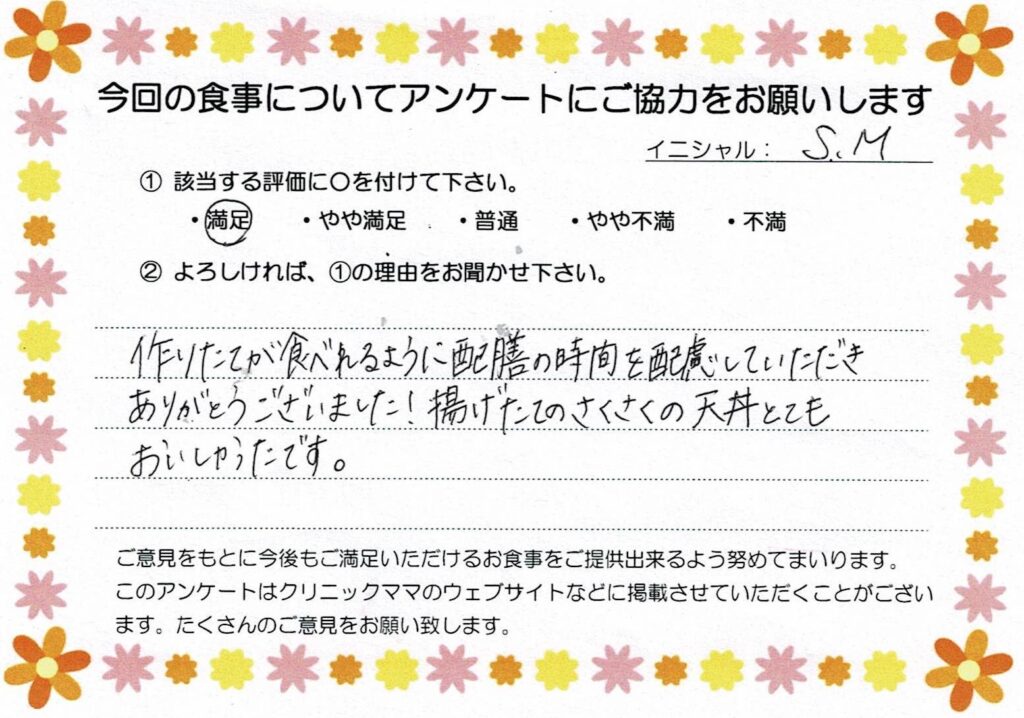 今回の食事についてアンケートにご協力をお願いします
イニシャル： S.M
① 該当する評価に〇を付けて下さい。
・満足 ・やや満足 ・普通 ・やや不満 ・不満
② よろしければ、①の理由をお聞かせ下さい。
作りたてが食べれるように配膳の時間を配慮していただき
ありがとうございました！揚げたてのさくさくの天丼とても
おいしゅうたです。
ご意見をもとに今後もご満足いただけるお食事をご提供出来るよう努めてまいります。
このアンケートはクリニックママのウェブサイトなどに掲載させていただくことがござい
ます。たくさんのご意見をお願い致します。